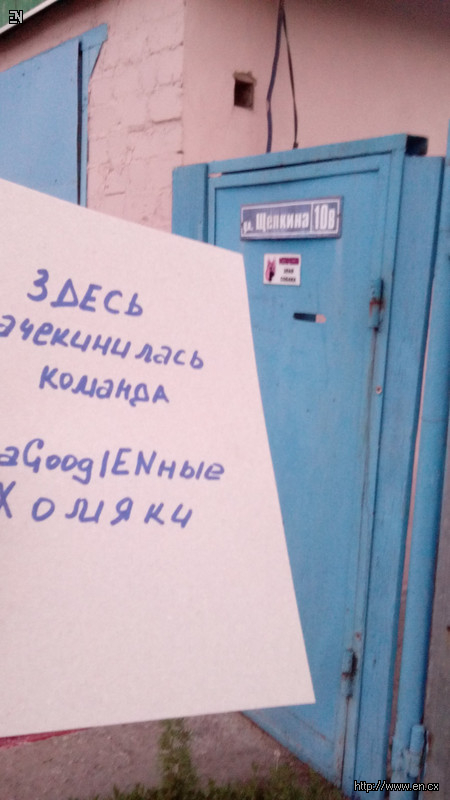 EN
ул. Щепкина 10в
ЗДЕСЬ
ачекинилась
команда
аGooglENные
Хомяки
http://www.en.cx